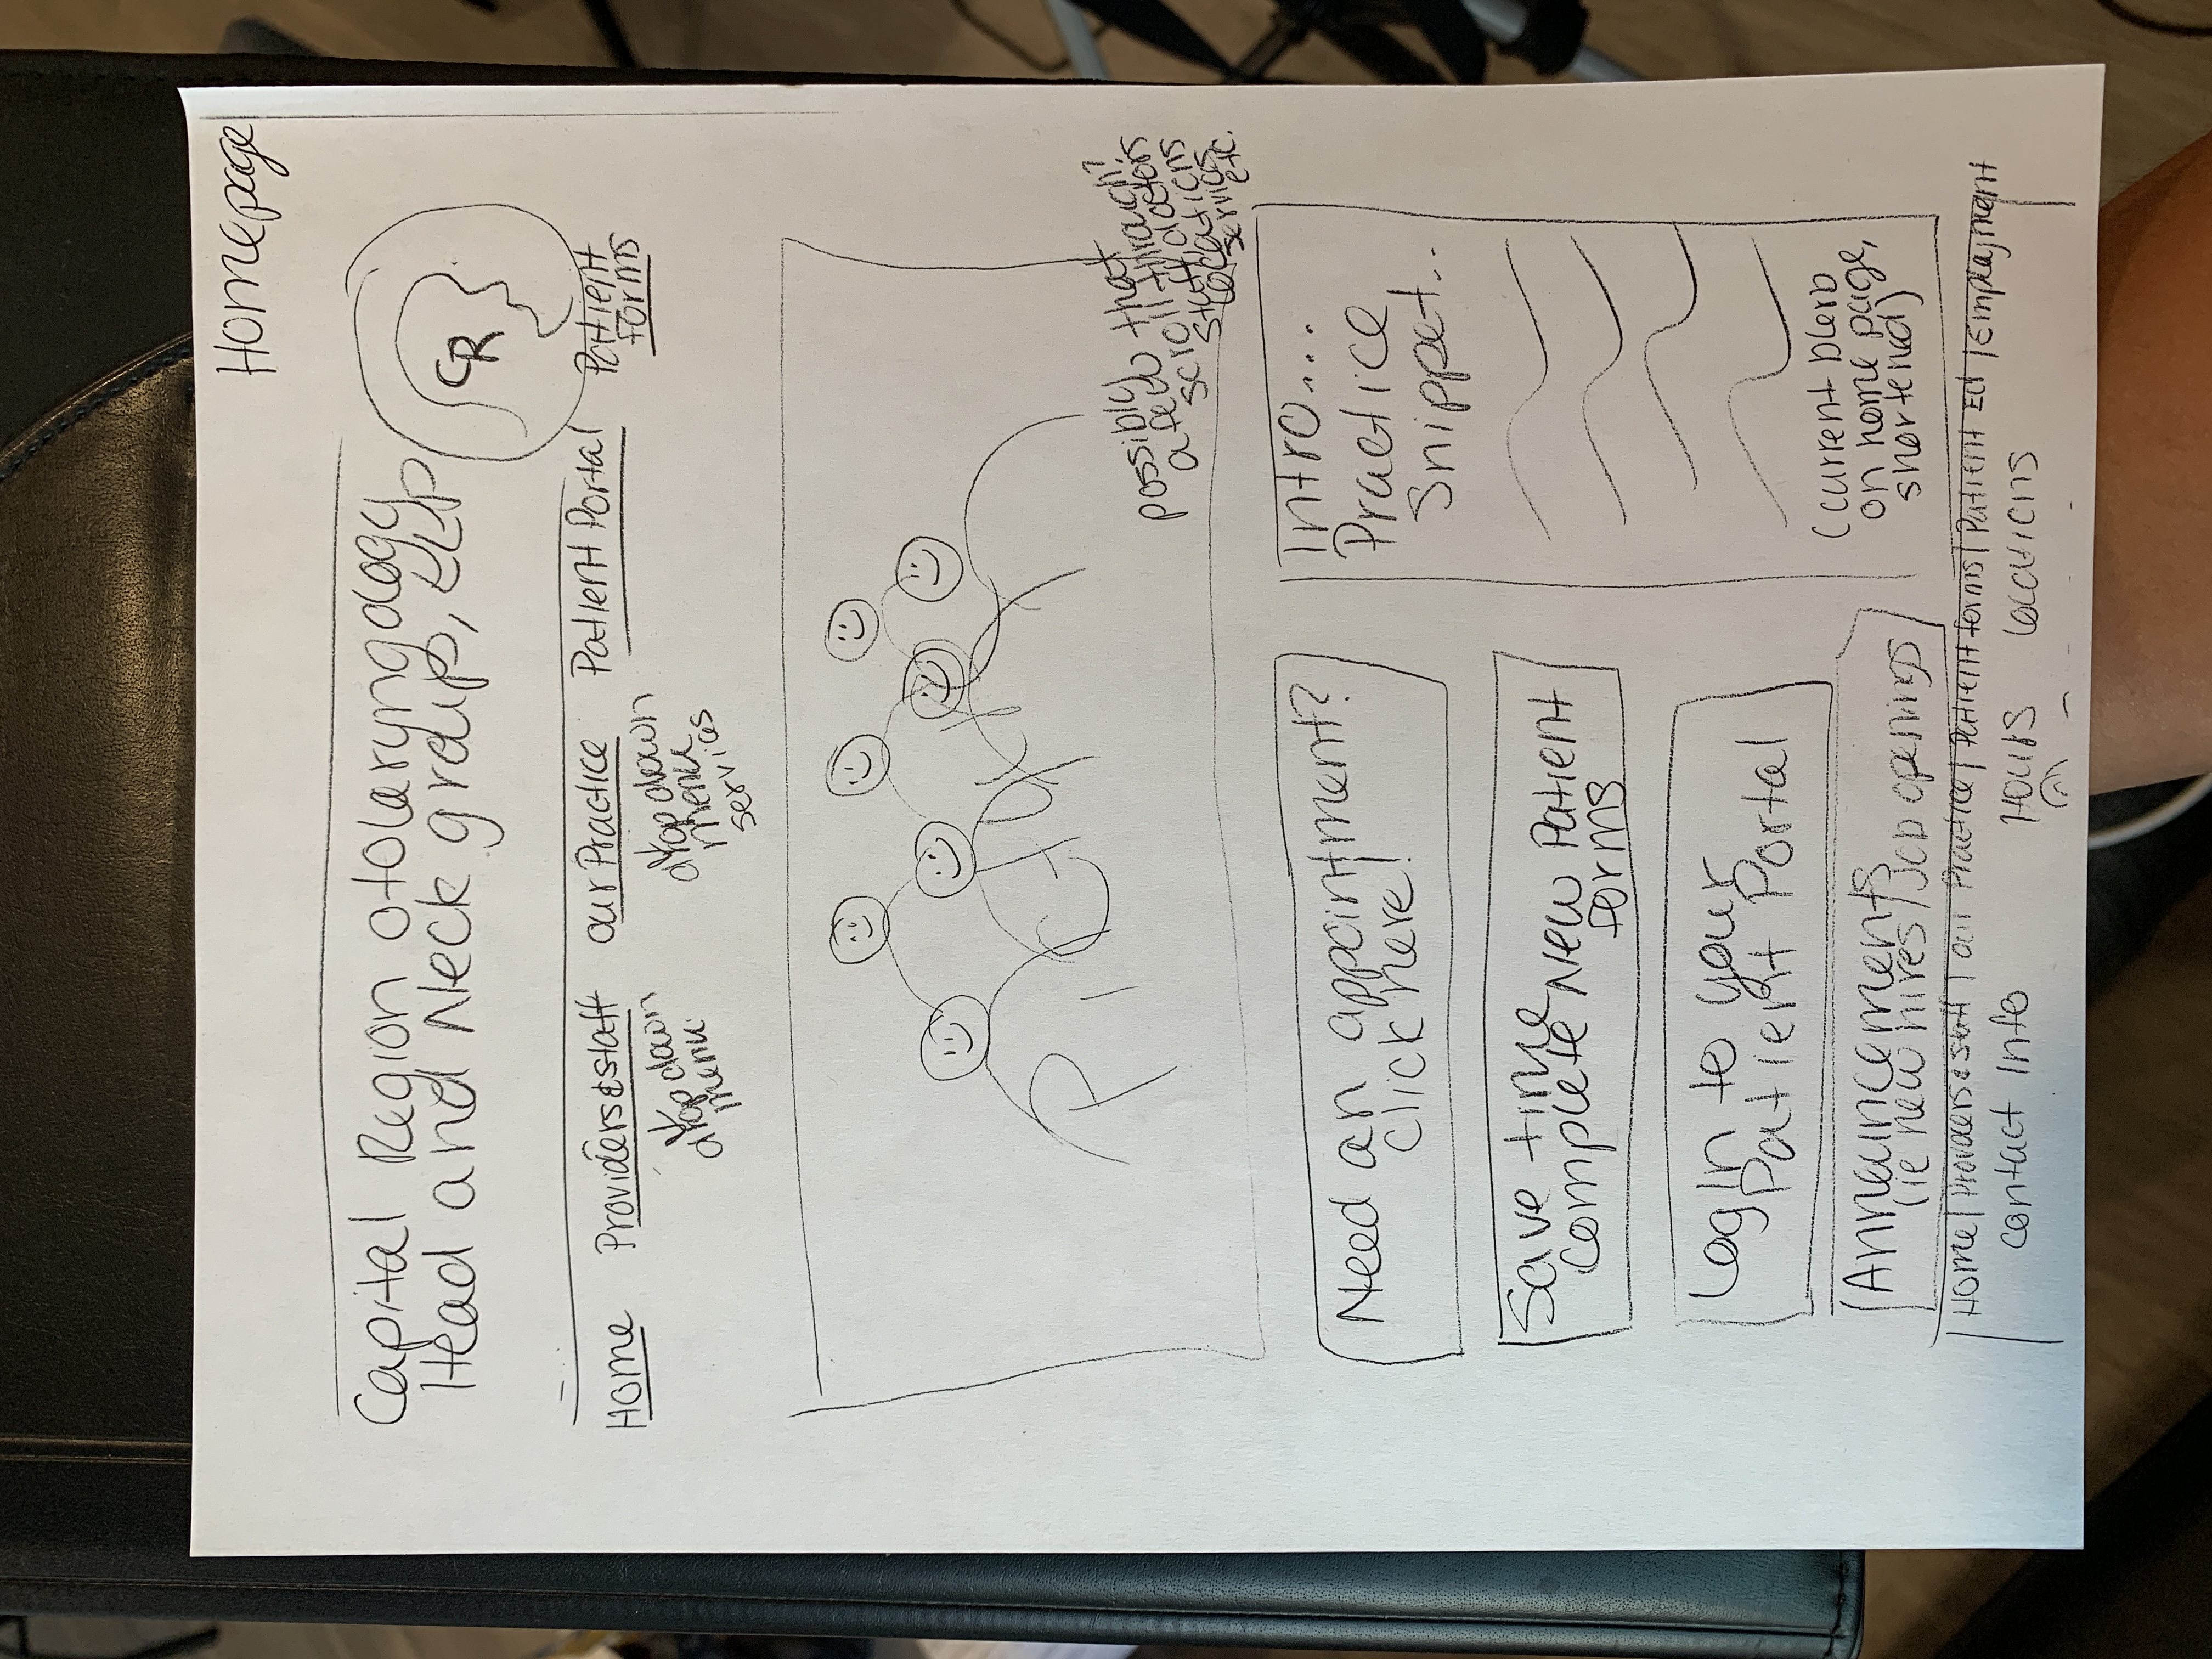 Homepage
Capital Region Otolaryngology
Head and Neck group, LLP
CR
Home Providers & staff our Practice Patient Portal Patient forms
drop down menu
drop down menu services
Picture
possibly
a few that
scroll through?
staff, doctors
locations
services
etc.
Need an appointment?
Click here!
Save time
complete New Patient
forms
Log In to your
Patient Portal
Announcements
(ie new hires / Job openings
Intro...
Practice
Snippet..
(current blerb
on home page,
shortened)
Home | Providers & staff | our Practice | Patient forms | Patient Ed | Employment
contact Info Hours Locations